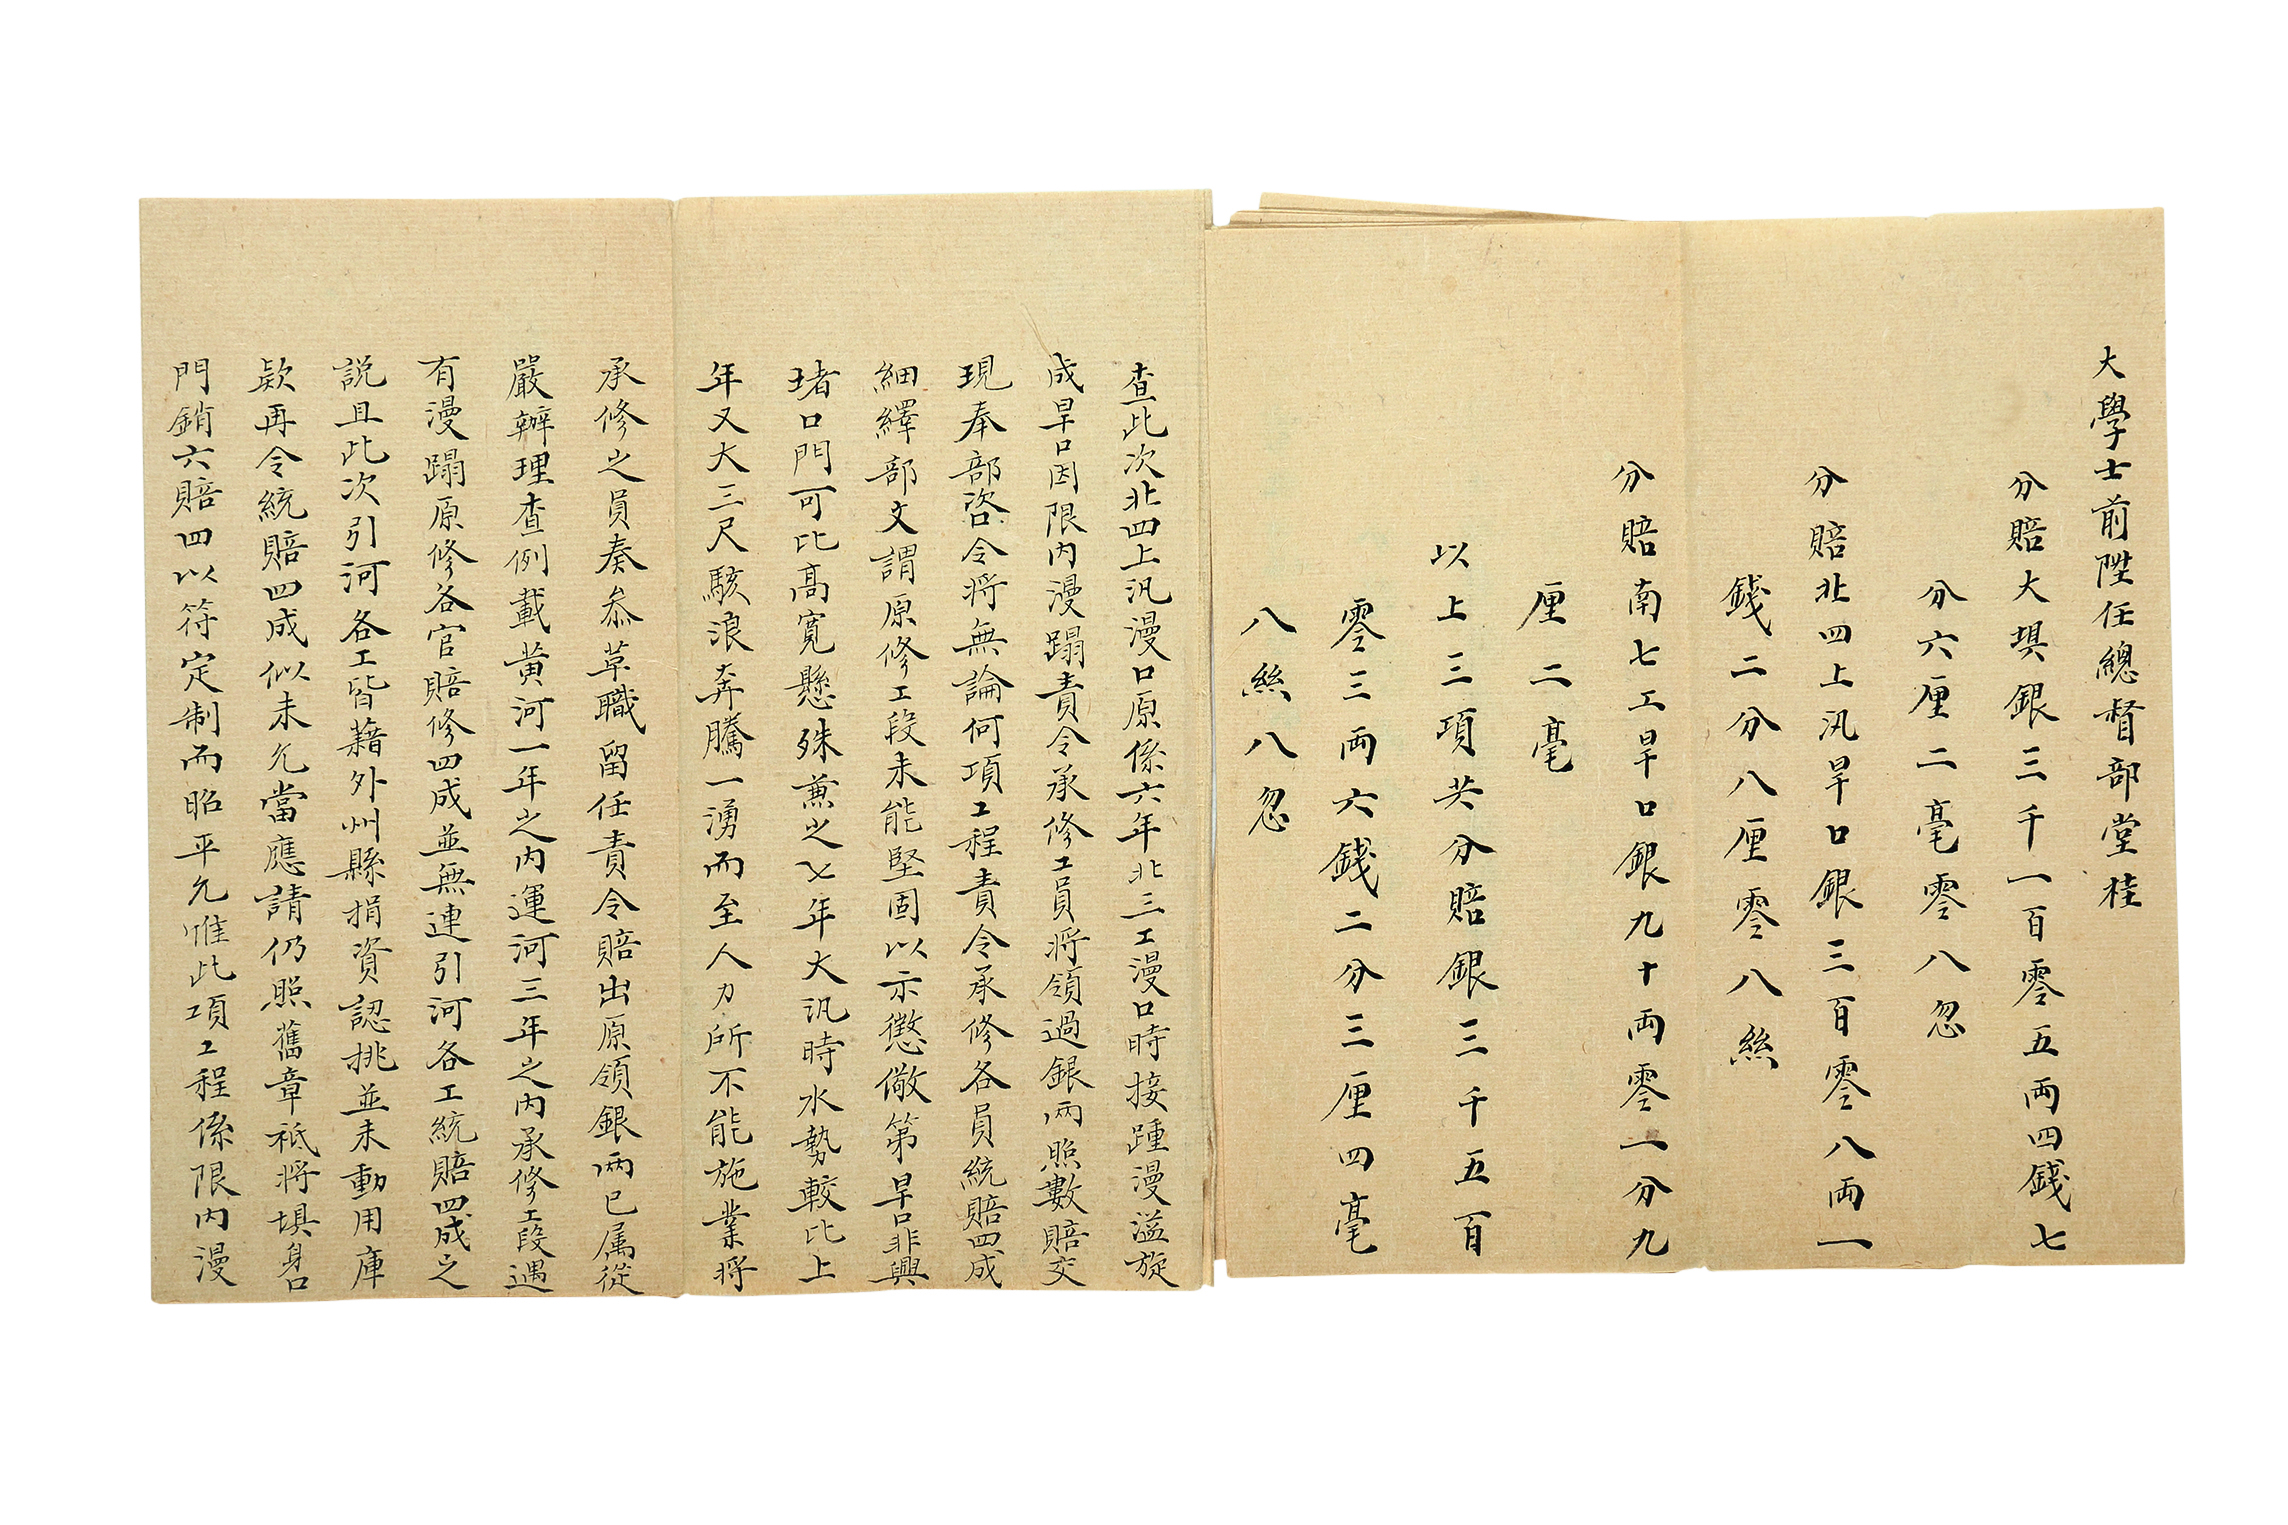 大學士前陞任總督部堂桂
分賠大埧銀三千一百零五両四錢七
分六厘二毫零八忽
分賠北四上汛旱口銀三百零八両一
錢二分八厘零八絲
分賠南七工旱口銀九十両零一分九
厘二毫
以上三項共分賠銀三千五百
零三両六錢二分三厘四毫
八絲八忽
查此次北四上汛漫口原係六年北三工漫口時接踵漫溢旋
成旱口因限内漫蹋責令承修工員將領過銀兩照數賠交
現奉部咨令將無論何項工程責令承修各員統賠四成
細繹部文謂原修工段未能堅固以示懲儆第旱口非興
堵口門可比高寬懸殊兼之七年大汛時水勢較比上
年又大三尺駭浪奔騰一湧而至人力所不能施業將
承修之員奏叅革職留任責令賠出原領銀兩已属從
嚴辦理查例載黄河一年之内運河三年之内承修工段遇
有漫蹋原修各官賠修四成並無連引河各工統賠四成之
説且此次引河各工皆藉外州縣捐資認挑並未動用庫
款再令統賠四成似未允當應請仍照舊章祗將埧身口
門銷六賠四以符定制而昭平允惟此項工程係限内漫